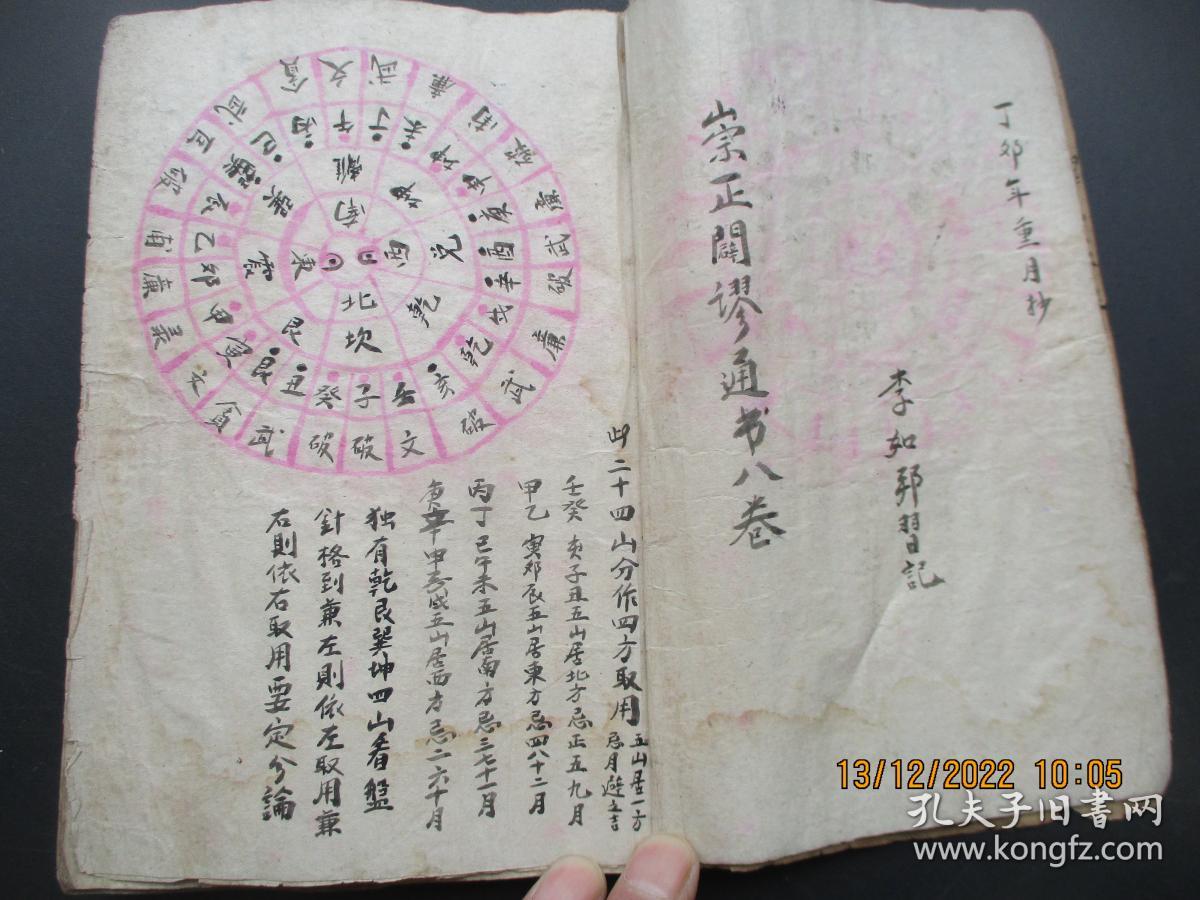 丁卯年重月抄
李如郅習記
崇正闢謬通书八卷
此二十四山分作四方取用 五山居一方
忌月避之吉
壬癸 亥子丑五山居北方忌正五九月
甲乙 寅卯辰五山居東方忌四八十二月
丙丁 巳午未五山居南方忌三七十一月
庚辛申酉戌五山居西方忌二六十月
独有乾艮巽坤四山看盤
針格到兼左則依左取用兼
右則依右取用要定分論
南
西
北
東
離
坤
兌
乾
坎
艮
震
巽
午
丁
未
坤
申
庚
酉
辛
戌
乾
亥
壬
子
癸
丑
艮
寅
甲
卯
乙
辰
巽
巳
丙
文
武
廉
破
廉
武
破
廉
武
破
文
破
破
武
貪
文
廉
破
武
貪
13/12/2022 10:05
孔夫子旧书网
www.kongfz.com